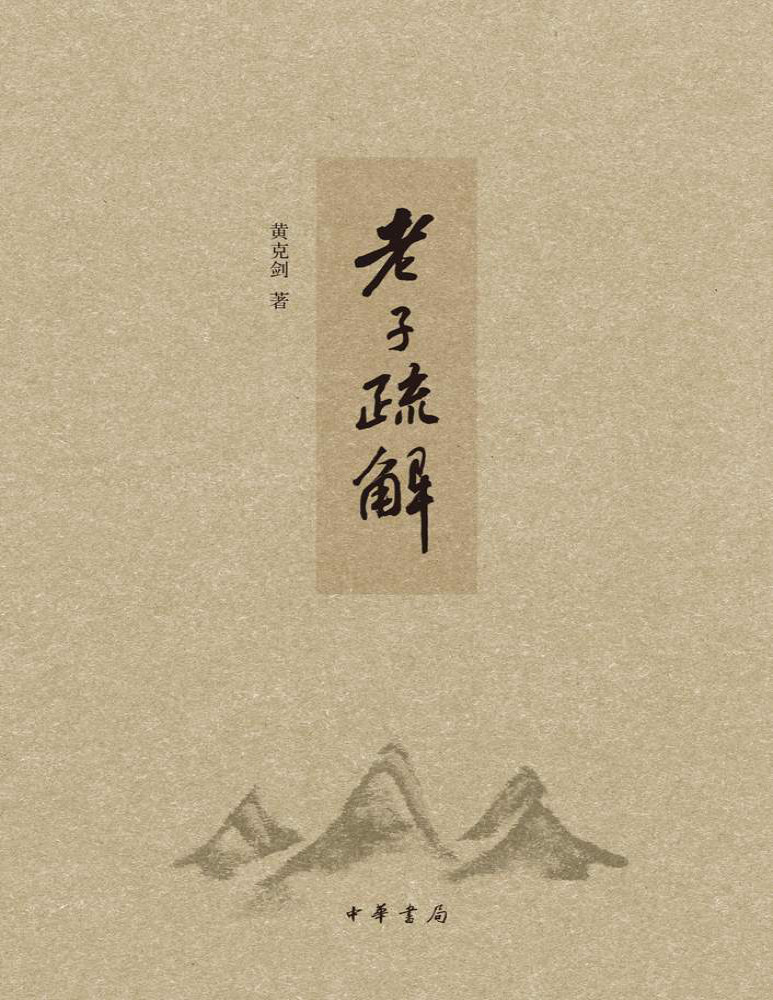 老子疏解
黄克剑 著
中華書局